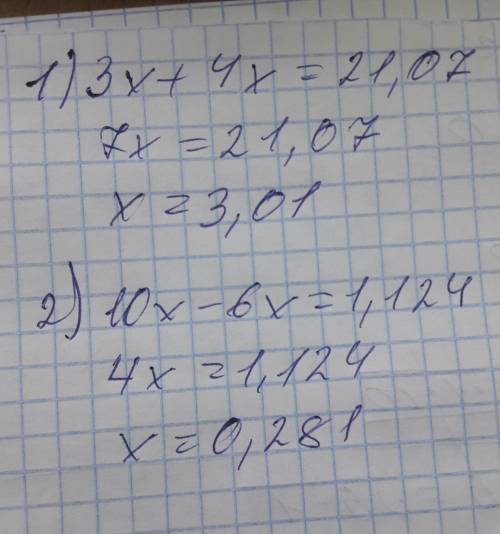 1) 3x + 4x = 21,07
7x = 21,07
x = 3,01
2) 10x - 6x = 1,124
4x = 1,124
x = 0,281